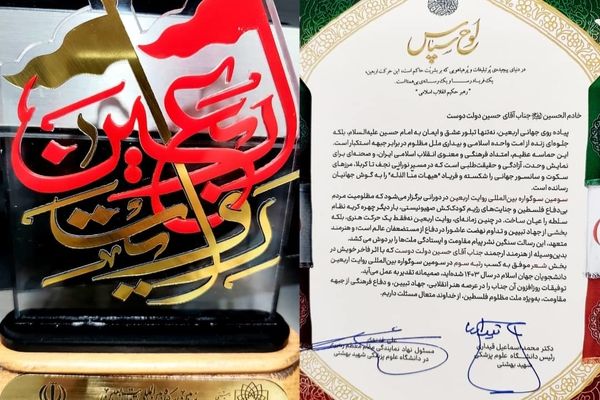 اربعین
روایت
لوح سپاس
در دنیای پیچیده‌ی پرتبلیغات و پرهیاهویی که بر بشریّت حاکم است، این حرکت اربعین،
یک فریاد رسا و یک رسانه‌ی بی‌همتا است.
"رهبر حکیم انقلاب اسلامی"
خادم الحسین جناب آقای حسین دولت دوست
پیاده روی جهانی اربعین، نه‌تنها تبلور عشق و ایمان به امام حسین علیه‌السلام، بلکه
جلوه‌ای زنده از امت واحده اسلامی و بیداری ملل مظلوم در برابر جبهه استکبار است.
این حماسه عظیم، امتداد فرهنگی و معنوی انقلاب اسلامی ایران، و صحنه‌ای برای
نمایش وحدت، آزادگی و حقیقت‌طلبی است که در مسیر نورانی نجف تا کربلا، مرزهای
سکوت و سانسور جهانی را شکسته و فریاد «هیهات منا الذله» را به گوش جهانیان
رسانده است.
سومین سوگواره بین‌المللی روایت اربعین در دورانی برگزار می‌شود که مظلومیت مردم
بی‌دفاع فلسطین و جنایت‌های رژیم کودک‌کش صهیونیستی، بار دیگر چهره کریه نظام
سلطه را عیان ساخت. در چنین زمانه‌ای، روایت اربعین نه‌فقط یک حرکت هنری، بلکه
بخشی از جهاد تبیین و تداوم نهضت عاشورا در دفاع از مستضعفان عالم است؛ و هنرمند
متعهد، این رسالت سنگین نشر پیام مقاومت و ایستادگی ملت‌ها را بر دوش می‌کشد.
بدین‌وسیله از هنرمند ارجمند جناب آقای حسین دولت دوست که با اثر فاخر خویش در
بخش شعر موفق به کسب رتبه سوم در سومین سوگواره بین‌المللی روایت اربعین
دانشجویان جهان اسلام در سال ۱۴۰۳ شده‌اید، صمیمانه تقدیر به عمل می‌آید.
توفیقات روزافزون آن جناب را در عرصه هنر انقلابی، جهاد تبیین، و دفاع فرهنگی از جبهه
مقاومت، به‌ویژه ملت مظلوم فلسطین، از خداوند متعال مسئلت داریم.
دکتر محمد اسماعیل قیداری
رئیس دانشگاه علوم پزشکی
شهید بهشتی
مسئول نهاد نمایندگی مقام معظم رهبری
در دانشگاه علوم پزشکی شهید بهشتی